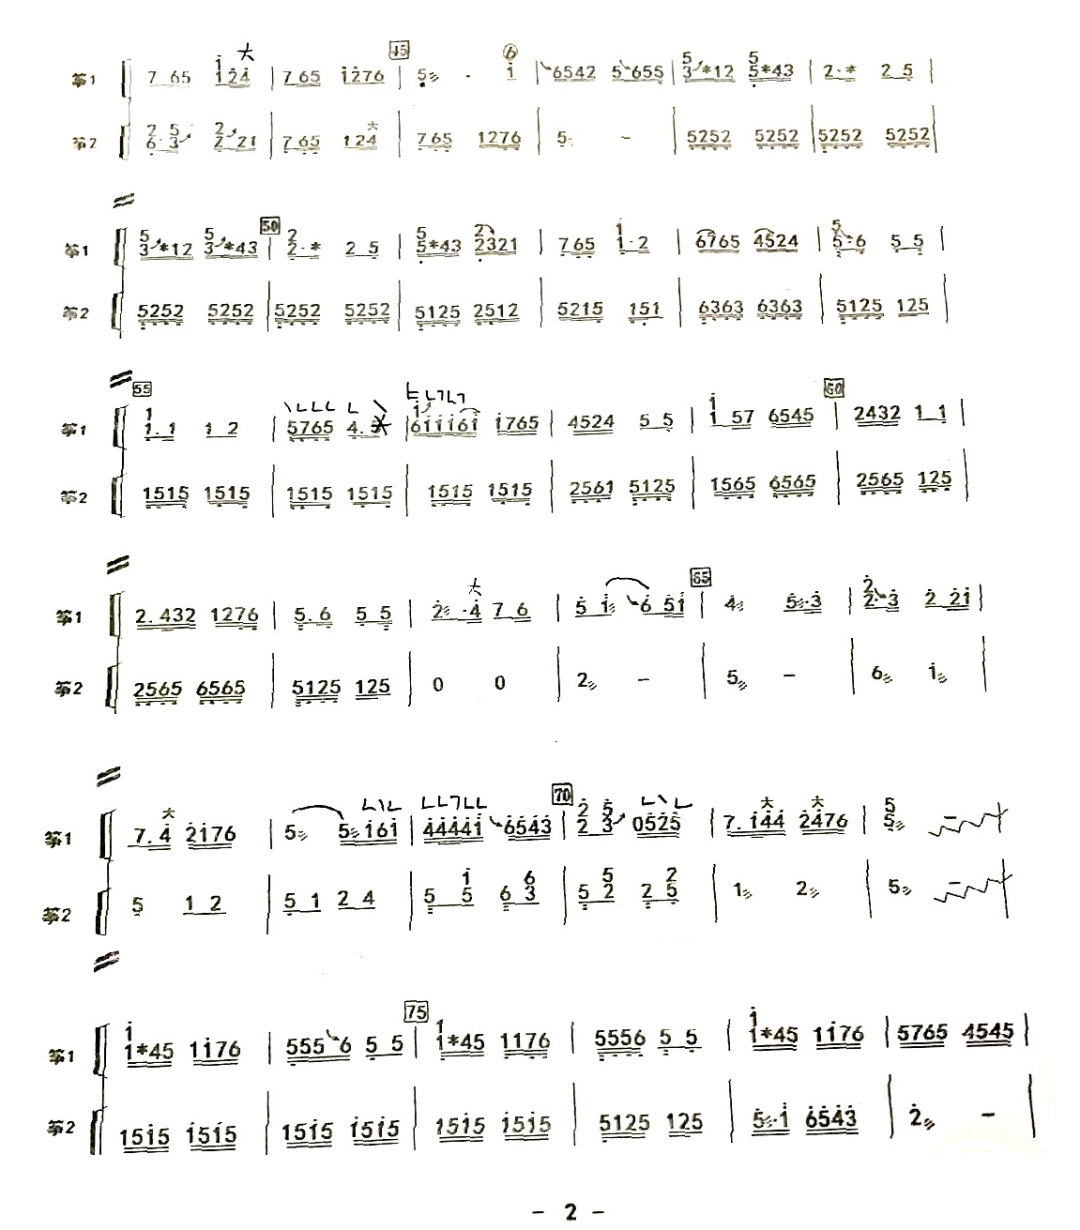 45
筝1 7 65 124 大 | 765 1276 | 5 · 1 | 6542 5 655 | 5 3 *12 5 5 *43 | 2·* 2 5 |
筝2 2 6· 5 3 2 2 21 | 765 124 大 | 765 1276 | 5 – | 5252 5252 | 5252 5252 |
50
筝1 5 3 *12 5 3 *43 | 2 2·* 2 5 | 5 5 *43 2321 | 765 1 1·2 | 6765 4524 | 5·6 5 5 |
筝2 5252 5252 | 5252 5252 | 5125 2512 | 5215 151 | 6363 6363 | 5125 125 |
55 60
筝1 1 1.1 1 2 | 5765 4. | 611161 1765 | 4524 5 5 | 1 1 57 6545 | 2432 1 1 |
筝2 1515 1515 | 1515 1515 | 1515 1515 | 2561 5125 | 1565 6565 | 2565 125 |
65
筝1 2.432 1276 | 5.6 5 5 | 2·4 大 7 6 | 5 1 6 51 | 4 5·3 | 2 2·3 2 21 |
筝2 2565 6565 | 5125 125 | 0 0 | 2 – | 5 – | 6 1 |
70
筝1 7.4 大 2176 | 5 5 161 | 44441 6543 | 2 2 5 3 0525 | 7.144 大 2476 大 | 5 5 – |
筝2 5 1 2 | 5 1 2 4 | 5 1 5 6 6 3 | 5 5 2 2 2 5 | 1 2 | 5 – |
75
筝1 1 1*45 1176 | 555 6 5 5 | 1 1*45 1176 | 5556 5 5 | 1 1*45 1176 | 5765 4545 |
筝2 1515 1515 | 1515 1515 | 1515 1515 | 5125 125 | 5·1 6543 | 2 – |
– 2 –